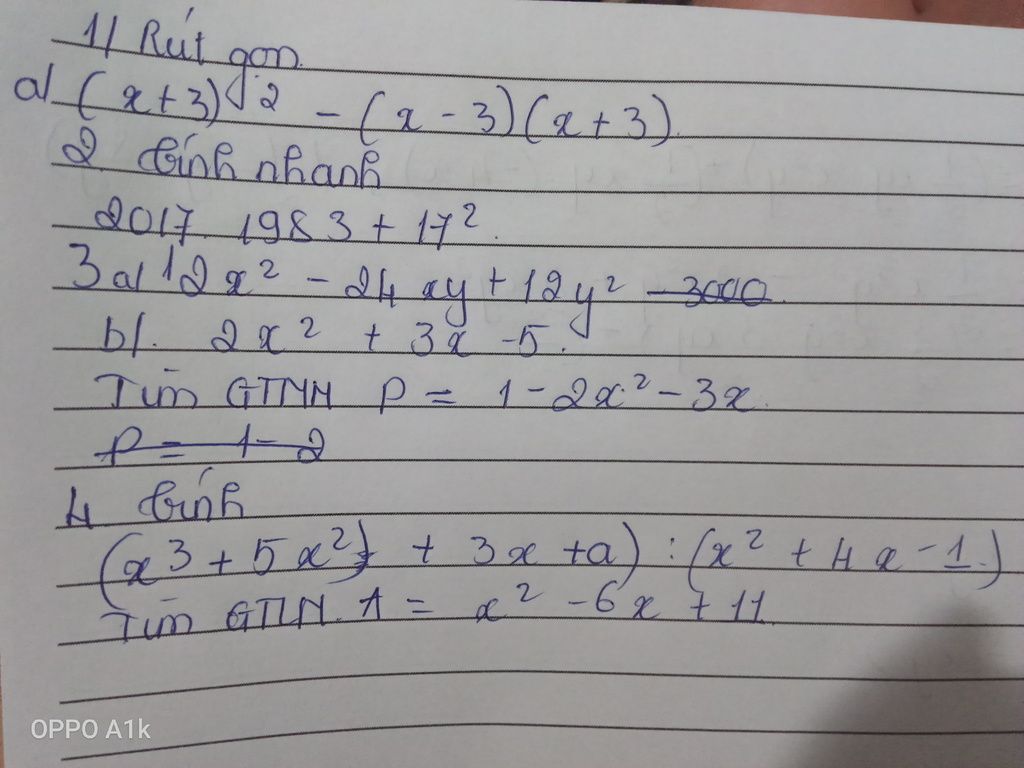 1/ Rút gọn
a/ (x+3)² - (x-3)(x+3).
2 tính nhanh
2017. 1983 + 17².
3 a/ 12x² - 24xy + 12y² - 3000.
b/. 2x² + 3x -5.
Tìm GTNN P = 1-2x²-3x.
P = 1-2
4 tính
(x3 + 5x² + 3x +a) : (x² + 4x -1.)
Tìm GTLN. A = x² -6x + 11
OPPO A1k